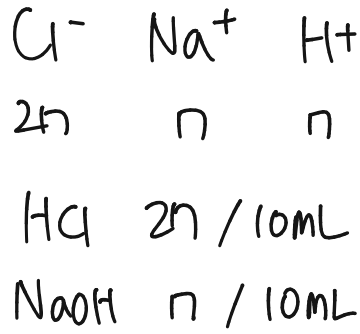 Cl⁻ Na⁺ H⁺
2n n n
HCl 2n / 10mL
NaOH n / 10mL